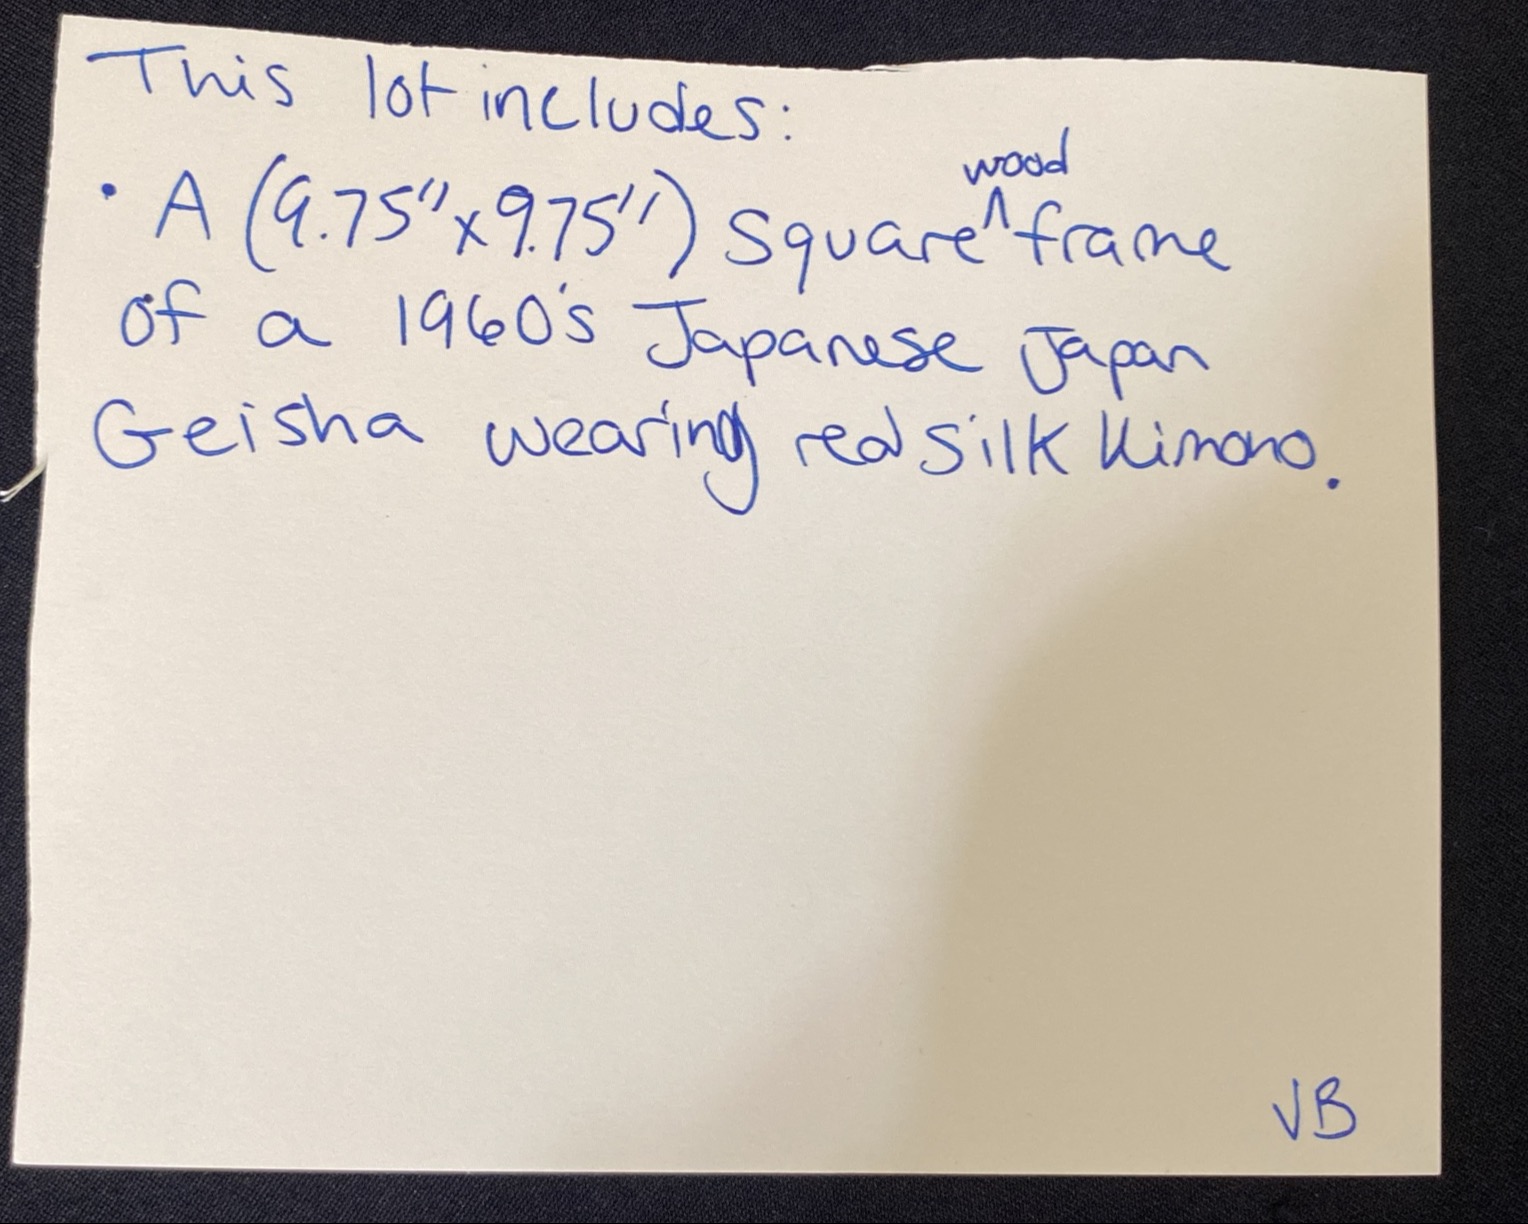 This lot includes:
• A (9.75"x9.75") square wood frame
of a 1960's Japanese Japan
Geisha wearing red silk Kimono.
VB